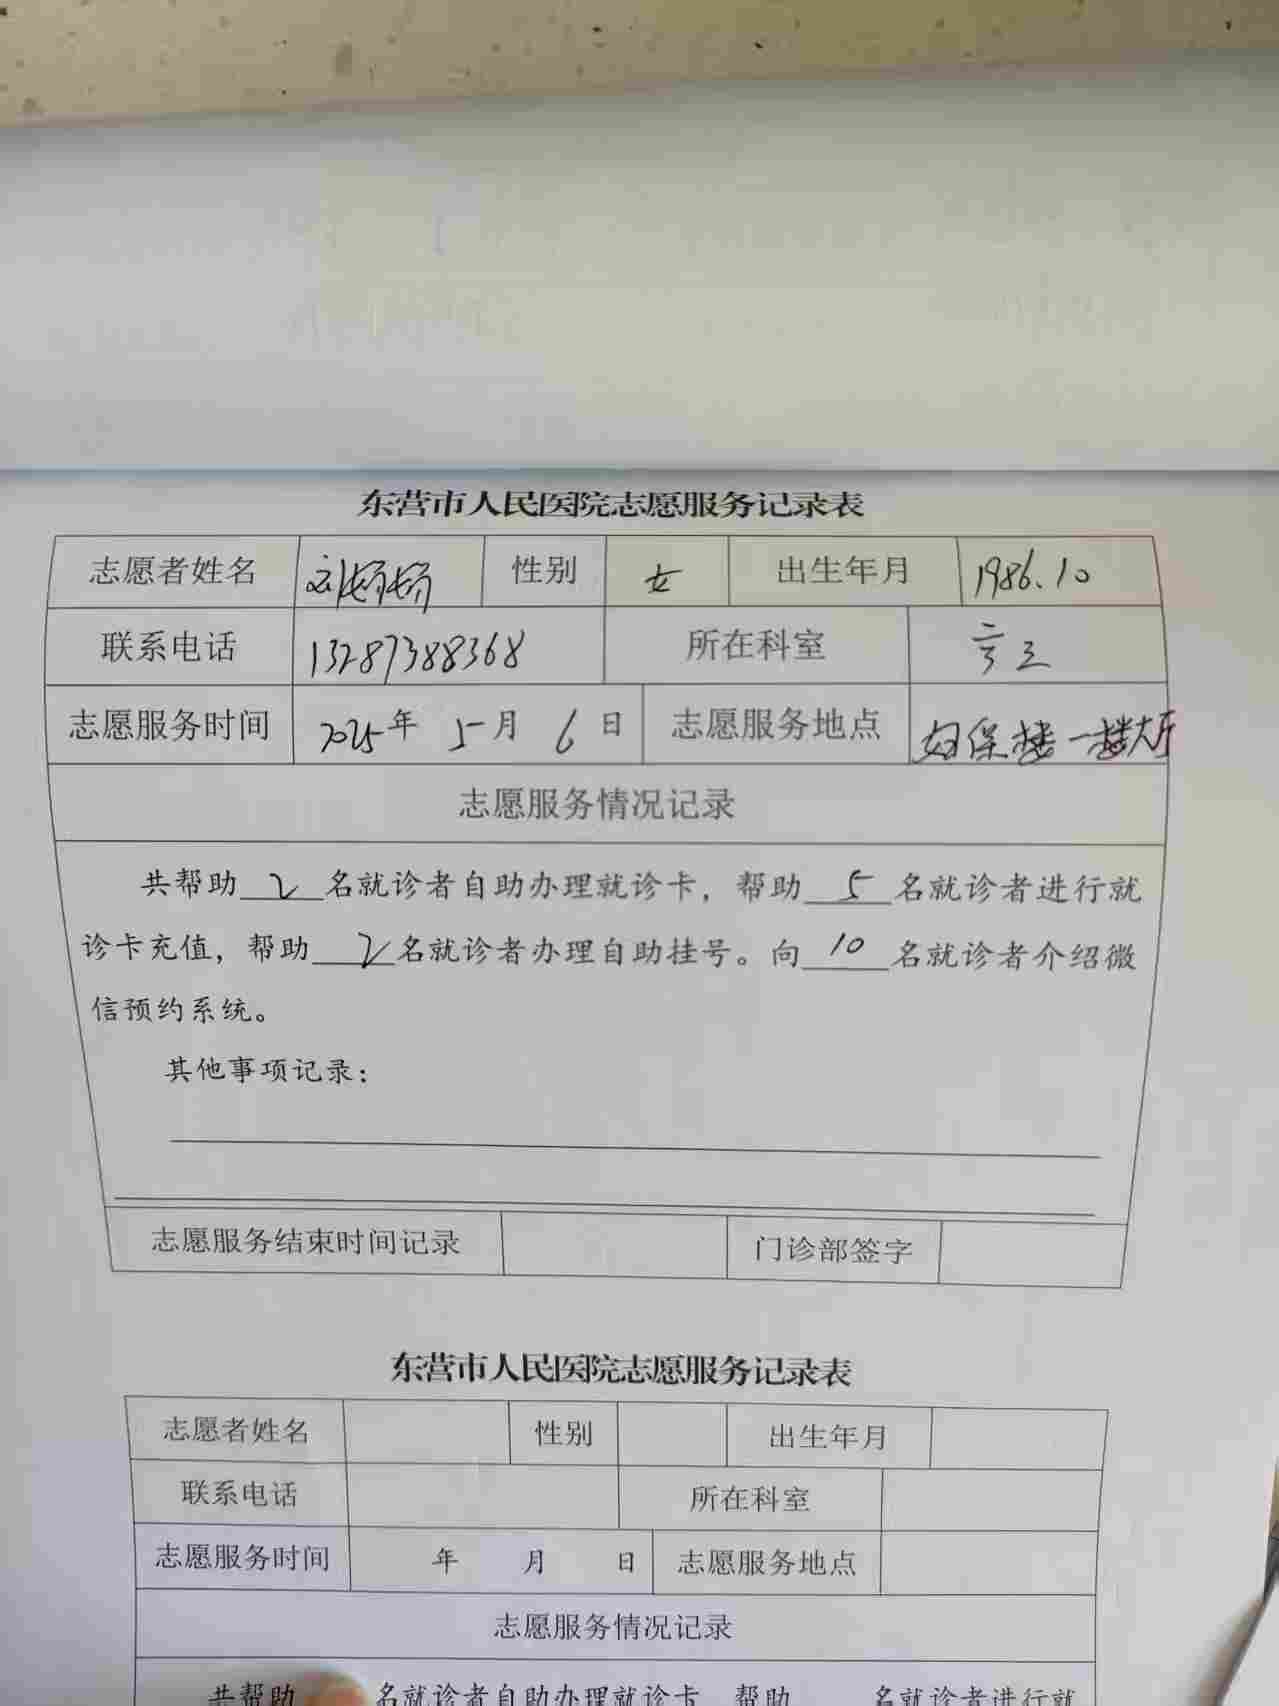 东营市人民医院志愿服务记录表
志愿者姓名 刘 性别 女 出生年月 1986.10
联系电话 13287388368 所在科室
志愿服务时间 2025年 5月 6日 志愿服务地点 妇保楼一楼大厅
志愿服务情况记录
共帮助 2 名就诊者自助办理就诊卡，帮助 5 名就诊者进行就
诊卡充值，帮助 2 名就诊者办理自助挂号。向 10 名就诊者介绍微
信预约系统。
其他事项记录：
志愿服务结束时间记录 门诊部签字
东营市人民医院志愿服务记录表
志愿者姓名 性别 出生年月
联系电话 所在科室
志愿服务时间 年 月 日 志愿服务地点
志愿服务情况记录
共帮助 名就诊者自助办理就诊卡 帮助 名就诊者进行就